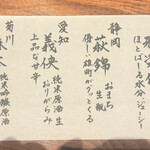 ほとばしる水分 ジューシー
静岡
萩錦 おまち 生酛
優しい雄町がグッとくる
愛知
義侠 純米原酒 生 おりがらみ
上品な甘辛
菊川
純米吟醸原酒